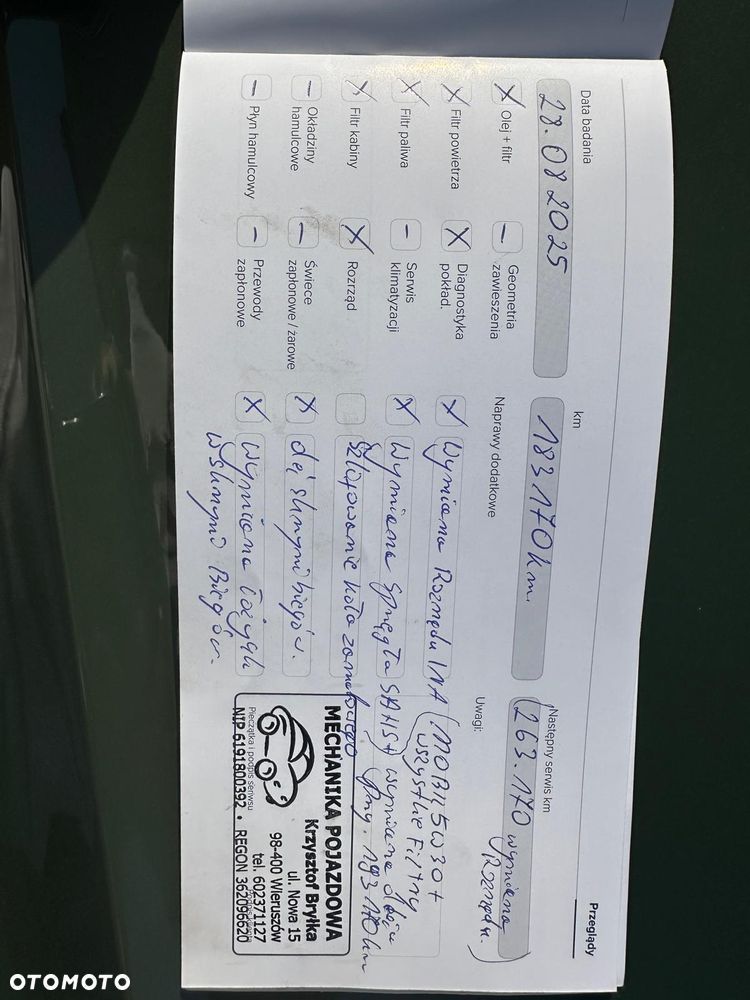 Przeglądy
Data badania
28.08 2025
km
183170km.
Następny serwis km
263.170 wymiana
Rozrządu.
X Olej + filtr
X Filtr powietrza
X Filtr paliwa
X Filtr kabiny
– Okładziny
hamulcowe
– Płyn hamulcowy
– Geometria
zawieszenia
X Diagnostyka
pokład.
– Serwis
klimatyzacji
X Rozrząd
– Świece
zapłonowe / żarowe
– Przewody
zapłonowe
Naprawy dodatkowe
X Wymiana Rozrządu INA
X Wymiana Sprzęgła SAHS+ wymiana oleju
Szlifowanie koła zamachowego
X skrzyni biegów.
X Wymiana Łożysk
w skrzyni Biegów.
Uwagi:
(MOBIL 5W30+
wszystkie Filtry
Przy. 183 170 km
MECHANIKA POJAZDOWA
Krzysztof Bryłka
ul. Nowa 15
98-400 Wieruszów
tel. 602371127
Pieczątka i podpis serwisu
NIP 6191800392 • REGON 362096620
OTOMOTO